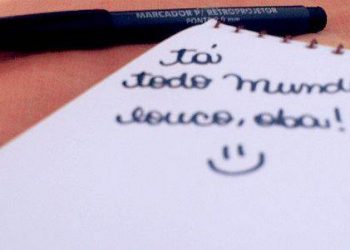 MARCADOR P/ RETROPROJETOR
PONTA 2.0 mm
tá
todo mund
louco, oba!